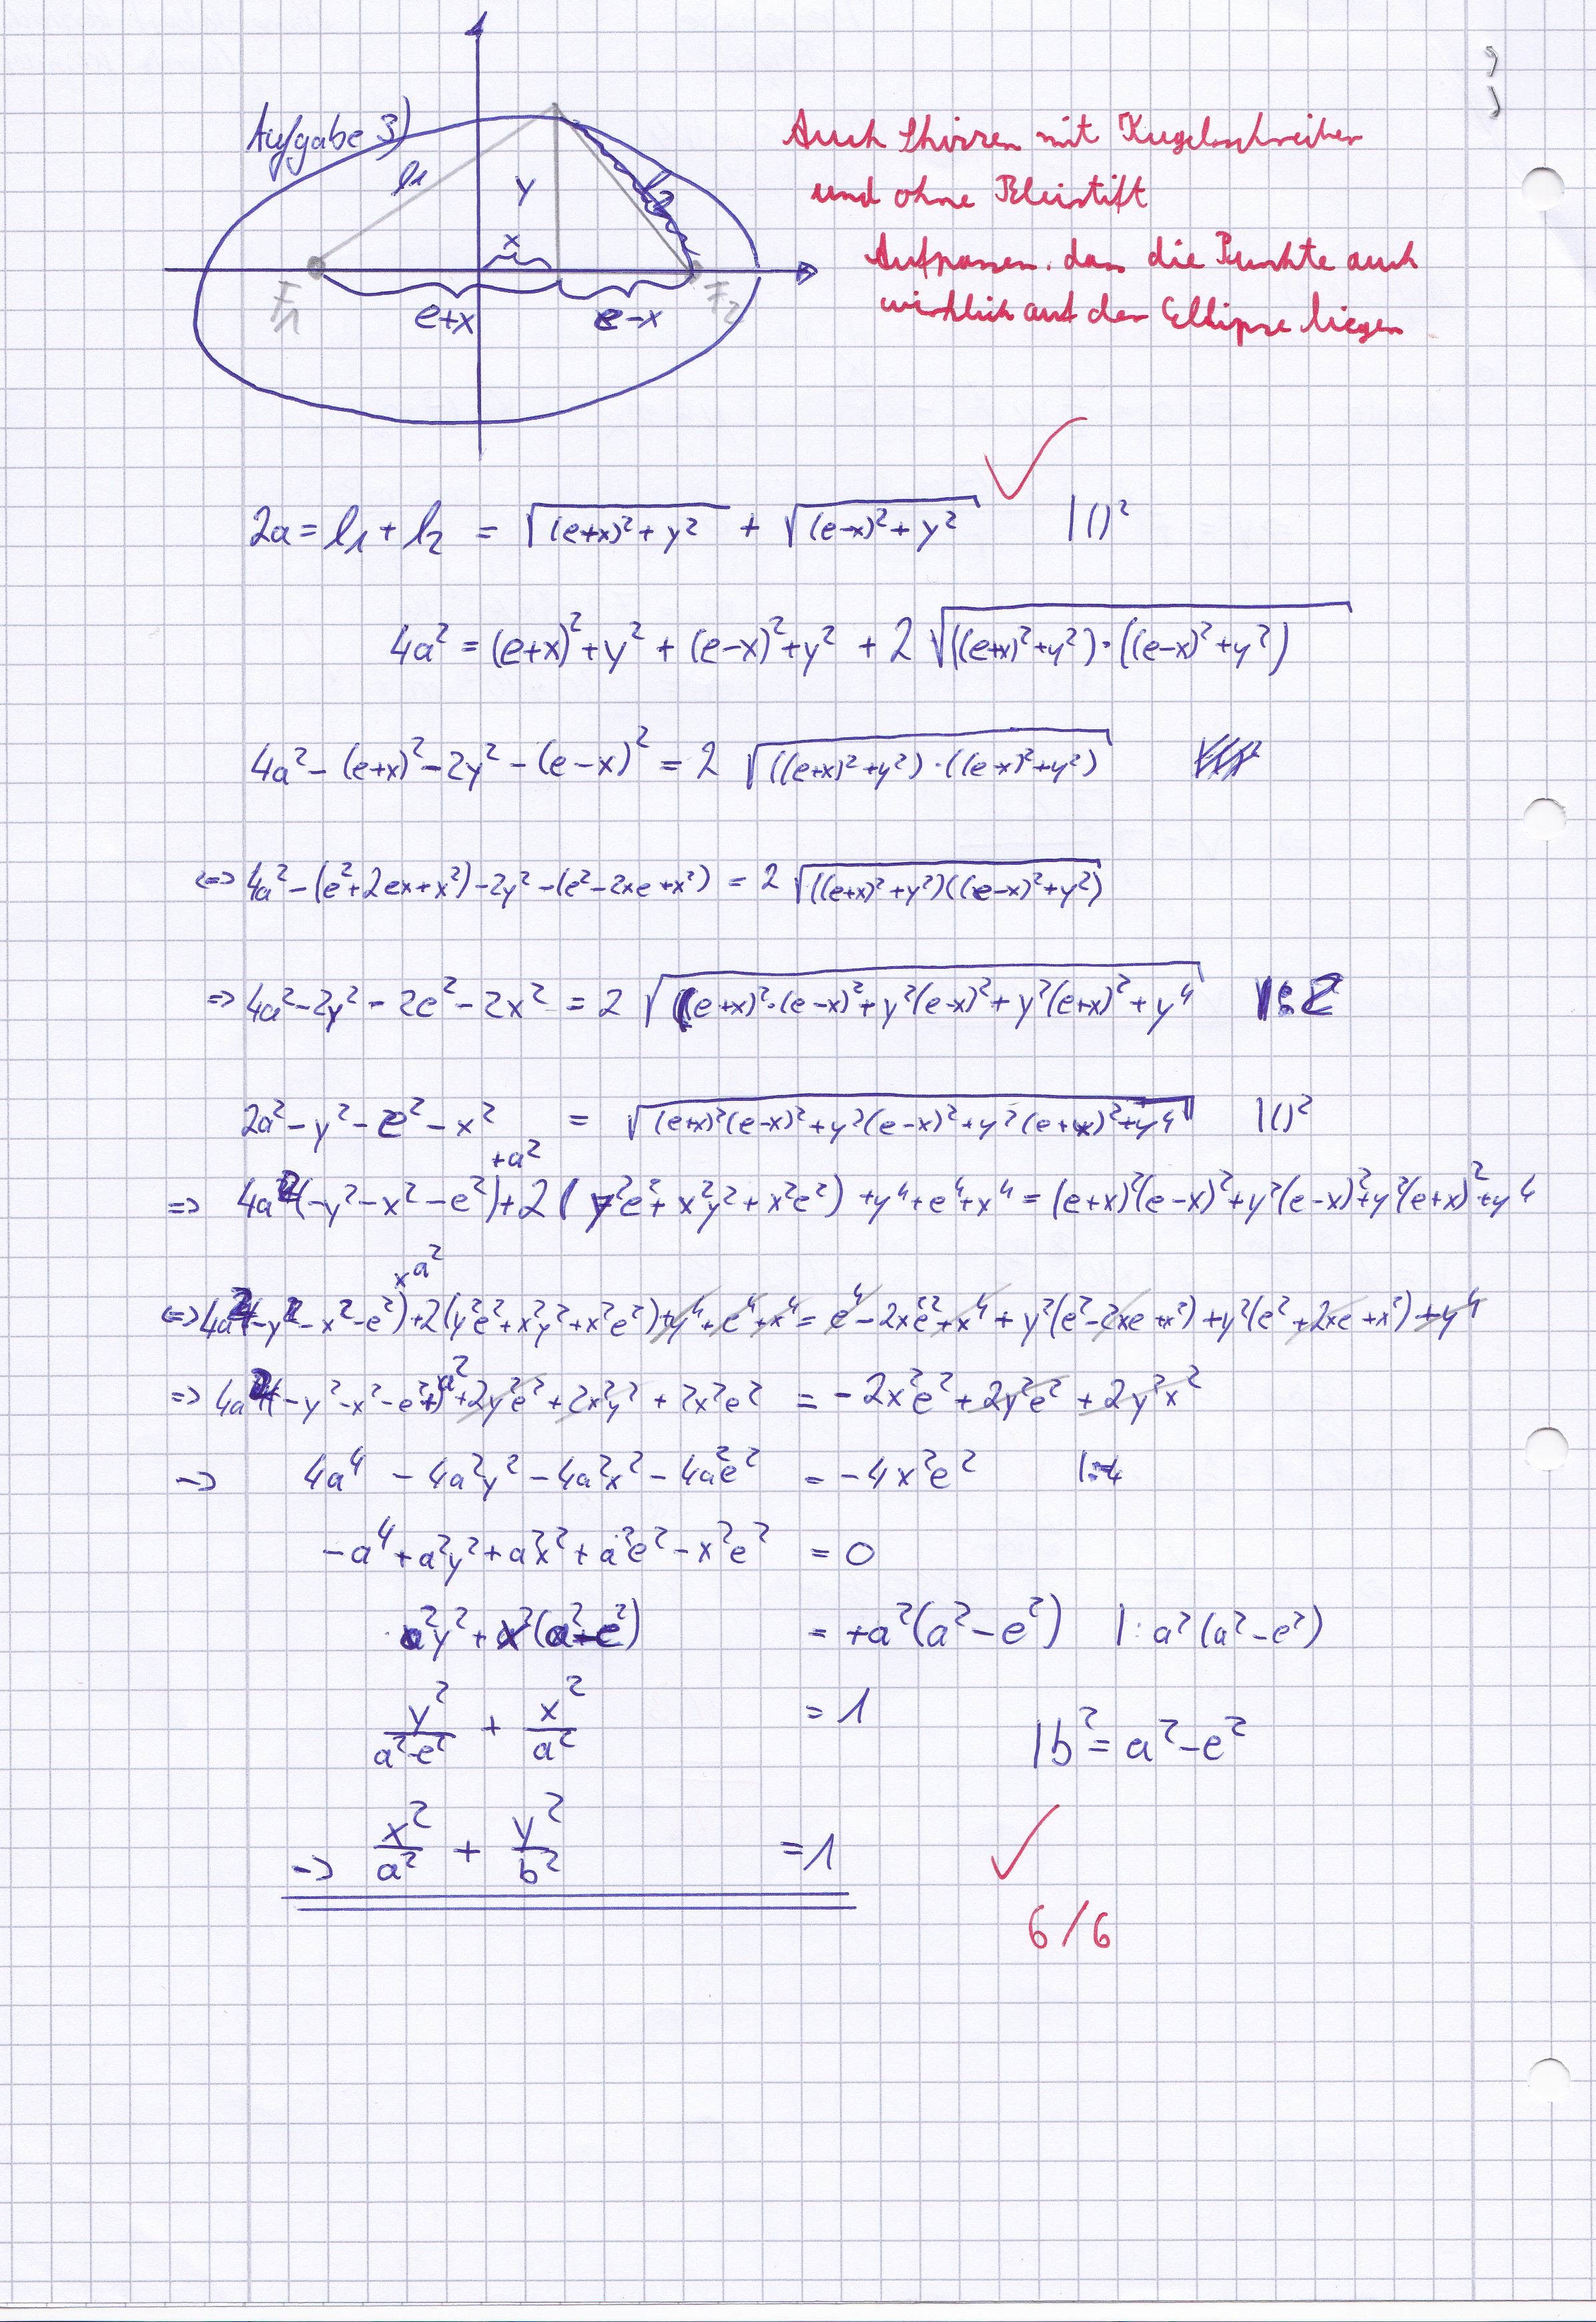 Aufgabe 3)
l₁ y l₂
x
F₁ e+x e-x F₂
Auch Skizzen mit Kugelschreiber
und ohne Bleistift
Aufpassen, dass die Punkte auch
wirklich auf der Ellipse liegen
2a = l₁ + l₂ = √((e+x)² + y²) + √((e-x)² + y²) |()²
4a² = (e+x)² + y² + (e-x)² + y² + 2 √(((e+x)² + y²)·((e-x)² + y²))
4a² - (e+x)² - 2y² - (e-x)² = 2 √(((e+x)² + y²)·((e-x)² + y²))
<=> 4a² - (e² + 2ex + x²) - 2y² - (e² - 2xe + x²) = 2 √(((e+x)² + y²)((e-x)² + y²))
=> 4a² - 2y² - 2e² - 2x² = 2 √((e+x)²·(e-x)² + y²(e-x)² + y²(e+x)² + y⁴) |:2
2a² - y² - e² - x² = √((e+x)²(e-x)² + y²(e-x)² + y²(e+x)² + y⁴) |()²
=> 4a²(-y² - x² - e² +a²) + 2(y²e² + x²y² + x²e²) + y⁴ + e⁴ + x⁴ = (e+x)²(e-x)² + y²(e-x)² + y²(e+x)² + y⁴
<=> 4a²(-y² - x² - e² +a²) + 2(y²e² + x²y² + x²e²) + y⁴ + e⁴ + x⁴ = e⁴ - 2x²e² + x⁴ + y²(e² - 2xe + x²) + y²(e² + 2xe + x²) + y⁴
=> 4a²(-y² - x² - e² + a²) + 2y²e² + 2x²y² + 2x²e² = -2x²e² + 2y²e² + 2y²x²
-> 4a⁴ - 4a²y² - 4a²x² - 4a²e² = -4x²e² |:-4
-a⁴ + a²y² + a²x² + a²e² - x²e² = 0
a²y² + x²(a²-e²) = +a²(a² - e²) | : a²(a² - e²)
y²/(a²-e²) + x²/a² = 1 |b² = a² - e²
-> x²/a² + y²/b² = 1
6/6